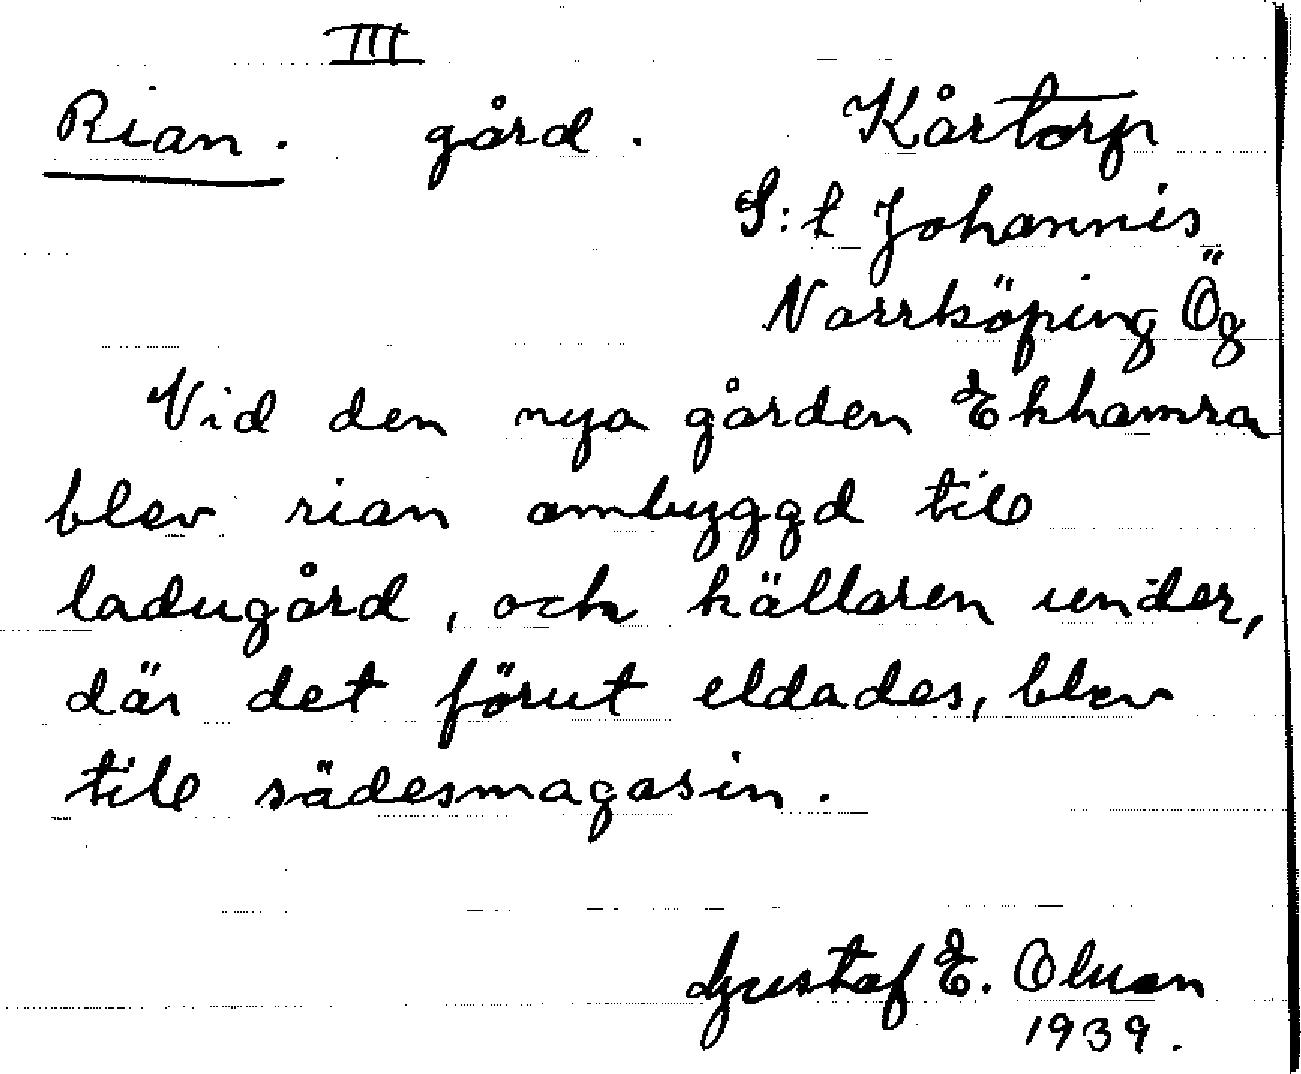 III
Rian. gård. Kårtorp
S:t Johannis
Norrköping Ög
Vid den nya gården Ekhamra
blev rian ombyggd till
ladugård, och källaren under,
där det förut eldades, blev
till sädesmagasin.
Gustaf E. Olsson
1939.